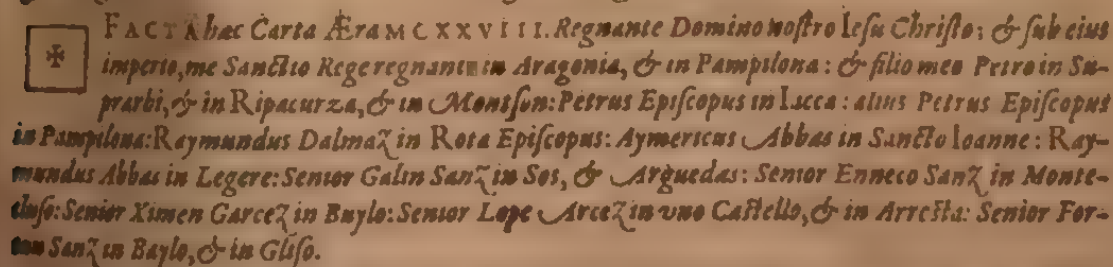 FACTA hæc Carta Æra MCXXVIII. Regnante Domino nostro Iesu Christo: & sub eius
imperio, me Sanctio Rege regnante in Aragonia, & in Pampilona: & filio meo Petro in Su-
prarbi, & in Ripacurza, & in Montson: Petrus Episcopus in Iacca: alius Petrus Episcopus
in Pampilona: Raymundus Dalmaz in Rota Episcopus: Aymericus Abbas in Sancto Ioanne: Ray-
mundus Abbas in Legere: Senior Galin Sanz in Sos, & Arguedas: Senior Enneco Sanz in Monte-
cluso: Senior Ximen Garcez in Buylo: Senior Lope Arcez in uno Castello, & in Arresta: Senior For-
tun Sanz in Baylo, & in Gliso.